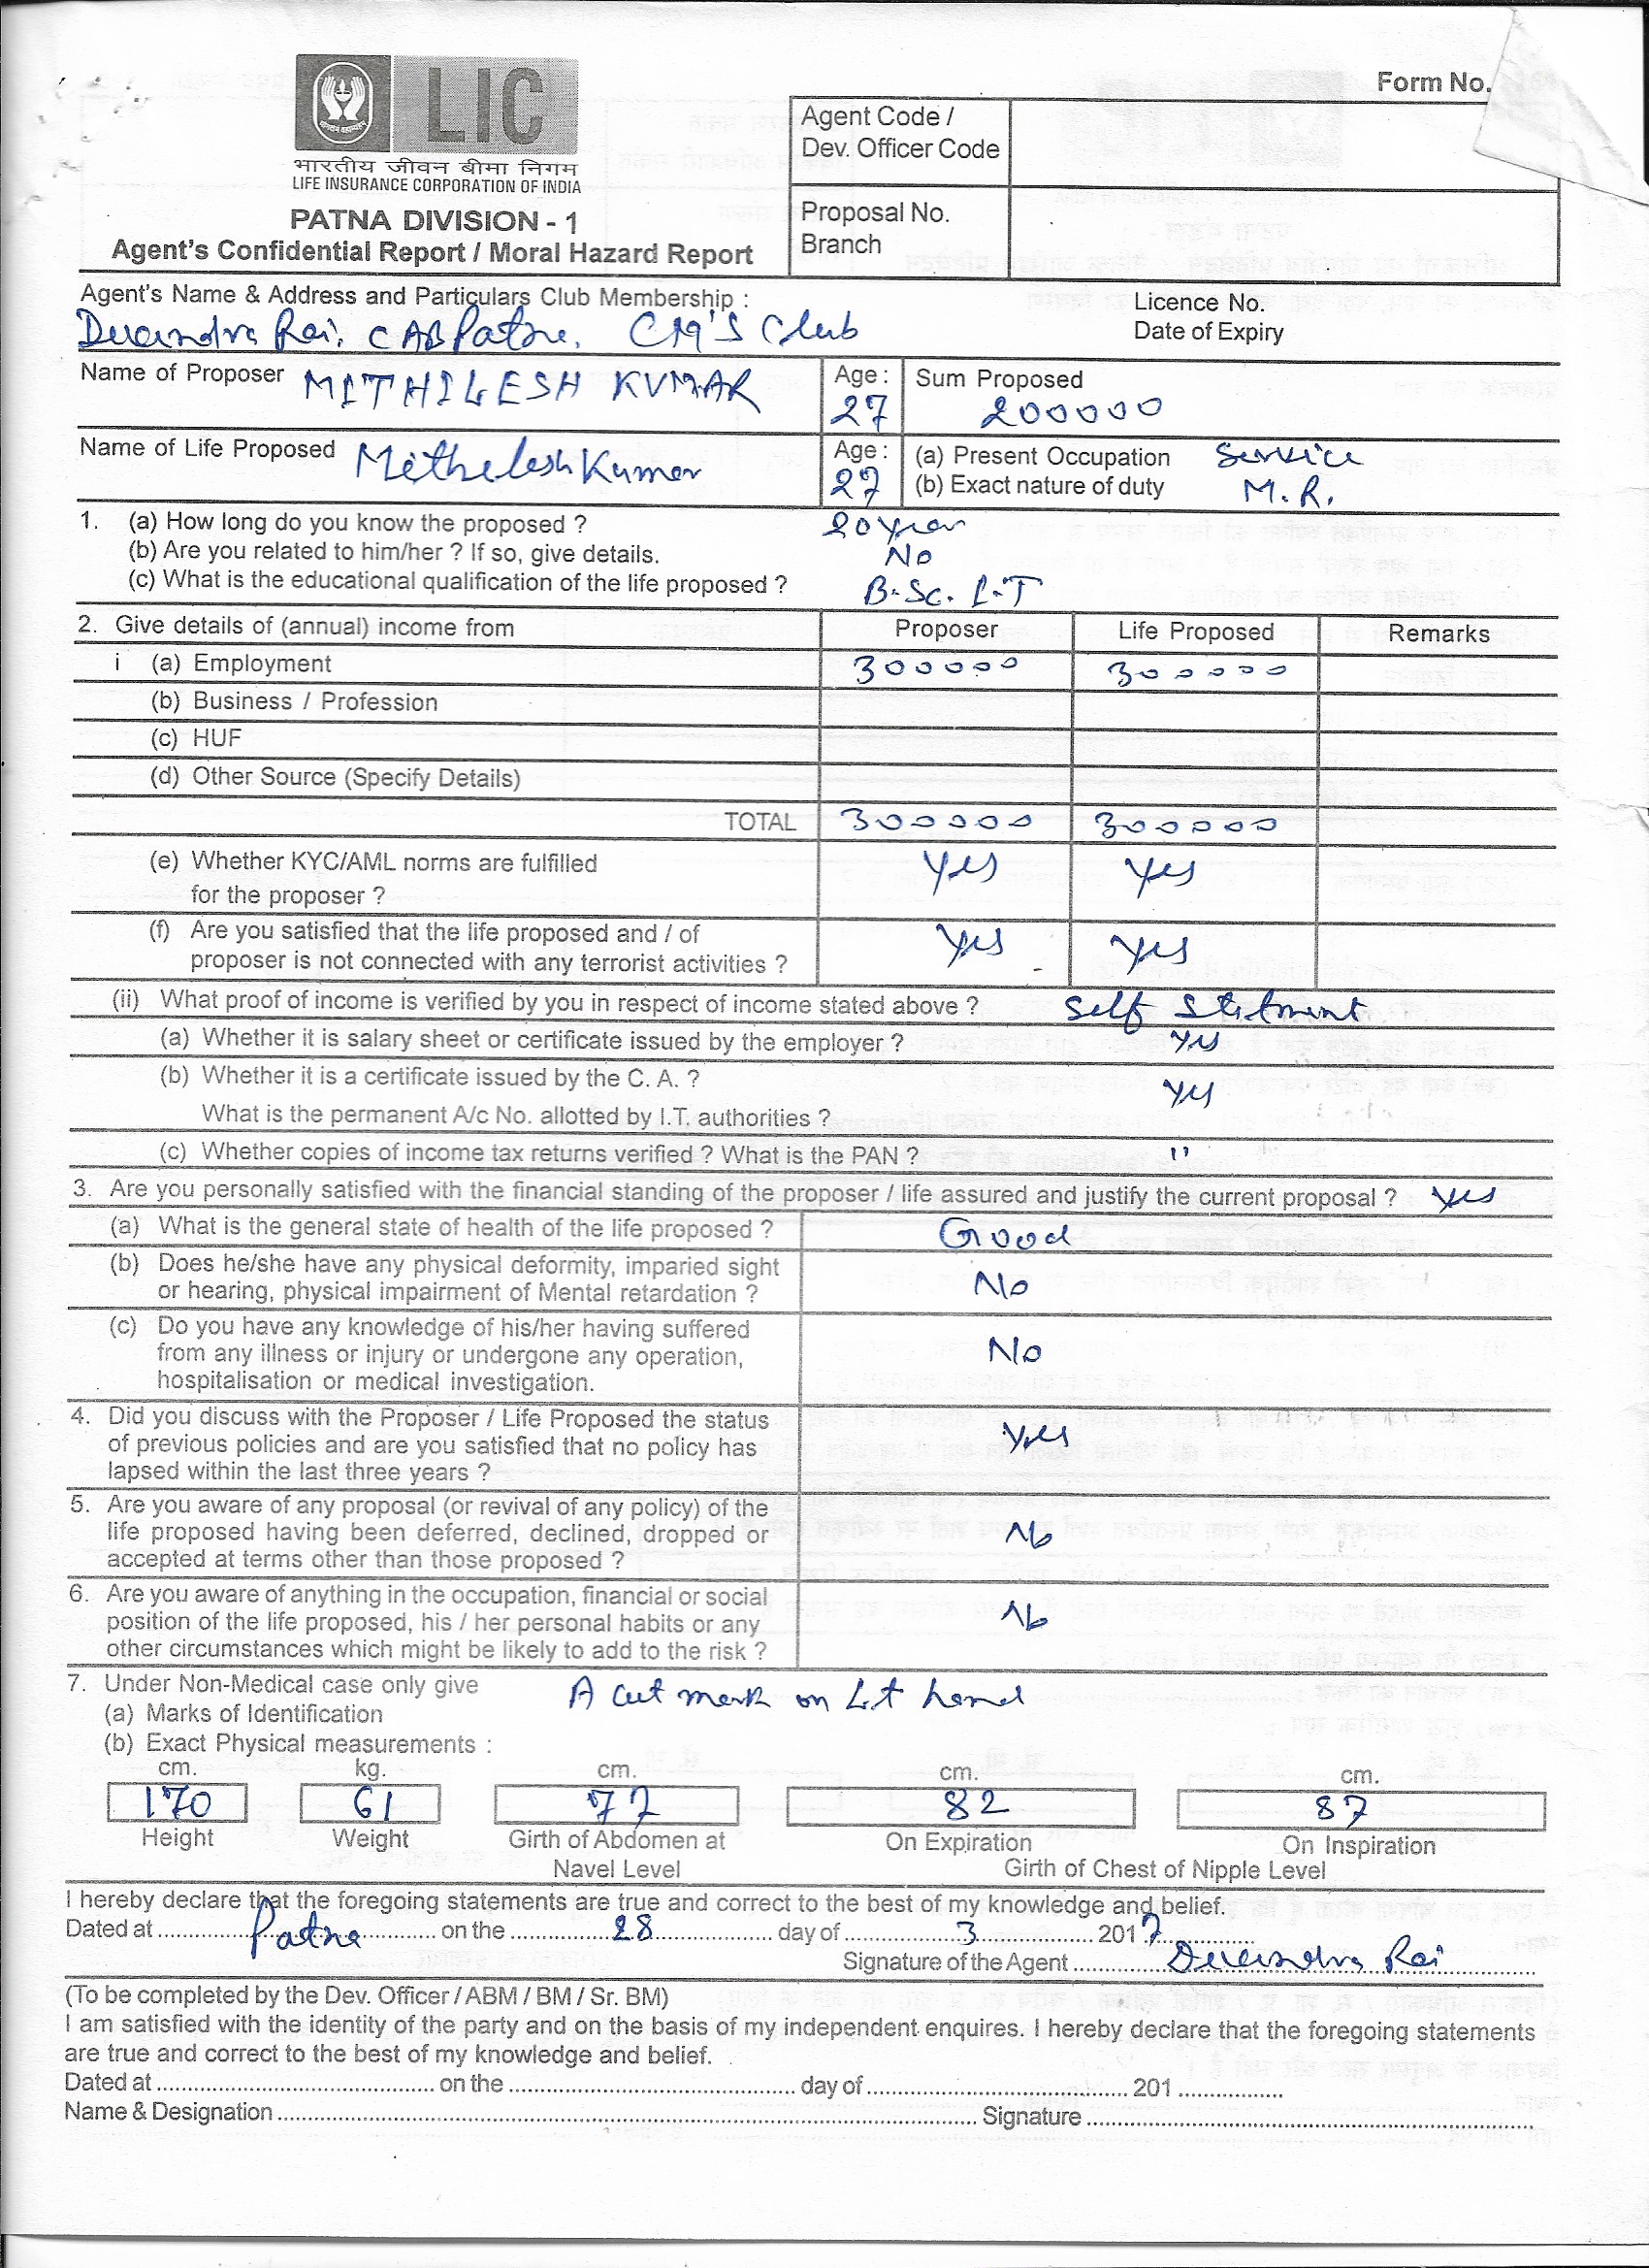 Form No.
LIC
भारतीय जीवन बीमा निगम
LIFE INSURANCE CORPORATION OF INDIA
PATNA DIVISION - 1
Agent's Confidential Report / Moral Hazard Report
Agent Code /
Dev. Officer Code
Proposal No.
Branch
Agent's Name & Address and Particulars Club Membership :
Licence No.
Date of Expiry
Devendra Rai. CAB Patna. CM'S Club
Name of Proposer MITHILESH KUMAR Age : 27 Sum Proposed 200000
Name of Life Proposed Mithelesh Kumar Age : 27 (a) Present Occupation Service
(b) Exact nature of duty M.R.
1. (a) How long do you know the proposed ? 20 year
(b) Are you related to him/her ? If so, give details. No
(c) What is the educational qualification of the life proposed ? B.Sc. I.T
2. Give details of (annual) income from Proposer Life Proposed Remarks
i (a) Employment 300000 300000
(b) Business / Profession
(c) HUF
(d) Other Source (Specify Details)
TOTAL 300000 300000
(e) Whether KYC/AML norms are fulfilled
for the proposer ? Yes Yes
(f) Are you satisfied that the life proposed and / of
proposer is not connected with any terrorist activities ? Yes Yes
(ii) What proof of income is verified by you in respect of income stated above ? Self Stetment
(a) Whether it is salary sheet or certificate issued by the employer ? Yes
(b) Whether it is a certificate issued by the C. A. ? Yes
What is the permanent A/c No. allotted by I.T. authorities ?
(c) Whether copies of income tax returns verified ? What is the PAN ? "
3. Are you personally satisfied with the financial standing of the proposer / life assured and justify the current proposal ? Yes
(a) What is the general state of health of the life proposed ? Good
(b) Does he/she have any physical deformity, imparied sight
or hearing, physical impairment of Mental retardation ? No
(c) Do you have any knowledge of his/her having suffered
from any illness or injury or undergone any operation, No
hospitalisation or medical investigation.
4. Did you discuss with the Proposer / Life Proposed the status
of previous policies and are you satisfied that no policy has Yes
lapsed within the last three years ?
5. Are you aware of any proposal (or revival of any policy) of the
life proposed having been deferred, declined, dropped or No
accepted at terms other than those proposed ?
6. Are you aware of anything in the occupation, financial or social
position of the life proposed, his / her personal habits or any No
other circumstances which might be likely to add to the risk ?
7. Under Non-Medical case only give A cut mark on Lt hand
(a) Marks of Identification
(b) Exact Physical measurements :
cm. kg. cm. cm. cm.
170 61 77 82 87
Height Weight Girth of Abdomen at On Expiration On Inspiration
Navel Level Girth of Chest of Nipple Level
I hereby declare that the foregoing statements are true and correct to the best of my knowledge and belief.
Dated at Patna on the 28 day of 3 2017
Signature of the Agent Devendra Rai
(To be completed by the Dev. Officer / ABM / BM / Sr. BM)
I am satisfied with the identity of the party and on the basis of my independent enquires. I hereby declare that the foregoing statements
are true and correct to the best of my knowledge and belief.
Dated at on the day of 201
Name & Designation Signature